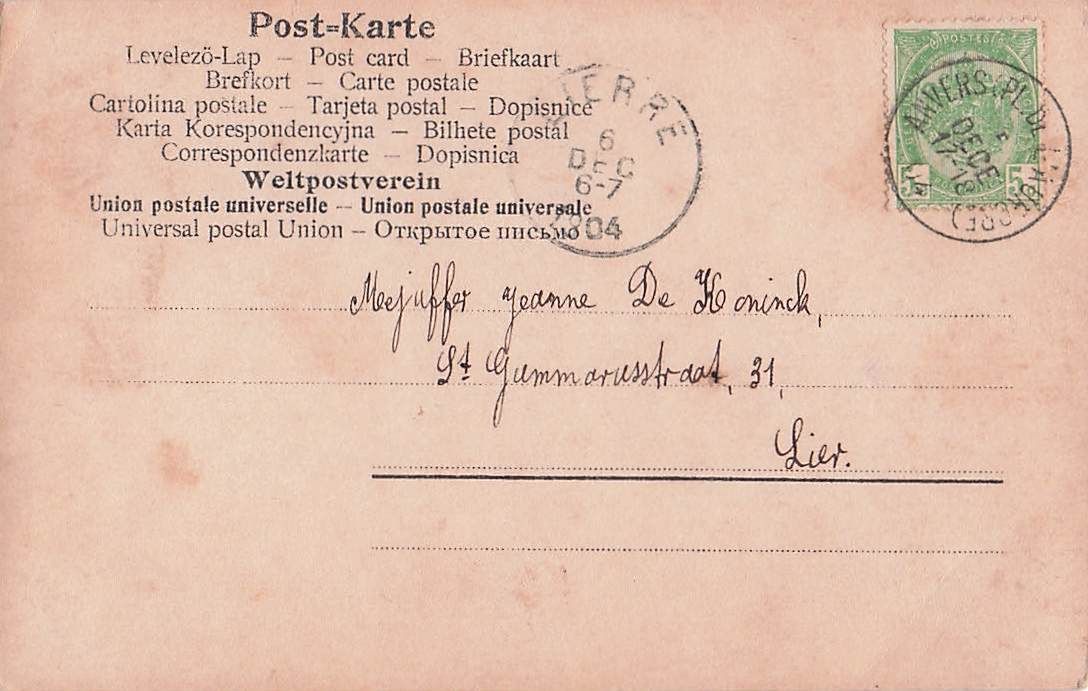 Post=Karte
Levelezö-Lap — Post card — Briefkaart
Brefkort — Carte postale
Cartolina postale — Tarjeta postal — Dopisnice
Karta Korespondencyjna — Bilhete postal
Correspondenzkarte — Dopisnica
Weltpostverein
Union postale universelle — Union postale universale
Universal postal Union — Открытое письмо
LIERRE
6
DEC
6-7
1904
POSTES
5
5
ANVERS (PL.
DECE
17-18
Mejuffer Jeanne De Koninck,
St Gummarusstraat, 31,
Lier.